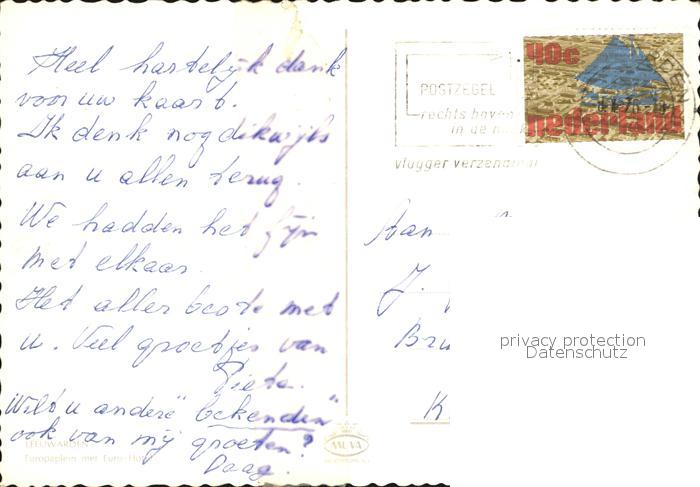 Heel hartelijk dank
voor uw kaart.
Ik denk nog dikwijls
aan u allen terug.
We hadden het fijn
met elkaar.
Het aller beste met
u. Veel groetjes van
Pieta.
Wilt u andere "bekenden"
ook van mij groeten?
Daag.
LEEUWARDEN
Europaplein met Euro-Hotel
MUVA
POSTZEGEL
rechts boven
in de
vlugger verzending
40c
nederland
Aan
J.
Bru
K.
privacy protection
Datenschutz